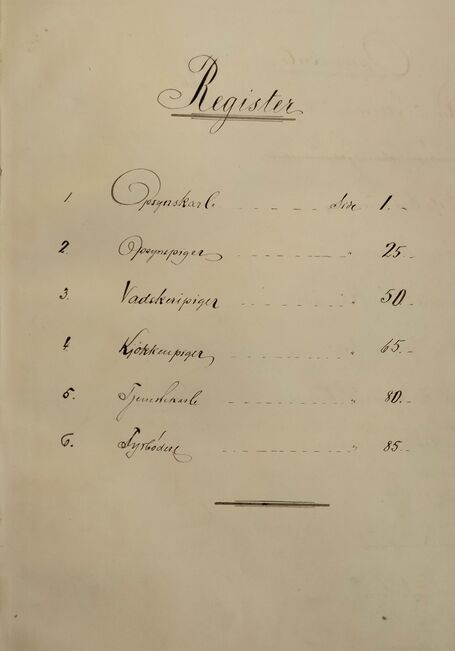 Register
1. Opsynskarle - - - - - Side 1.-
2. Opsynspiger - - - - - " 25.-
3. Vadskeripiger - - - - - " 50.-
4. Kjøkkenpiger - - - - - " 65.-
5. Tjenstekarle - - - - - " 80.-
6. Fyrbødere - - - - - " 85.-